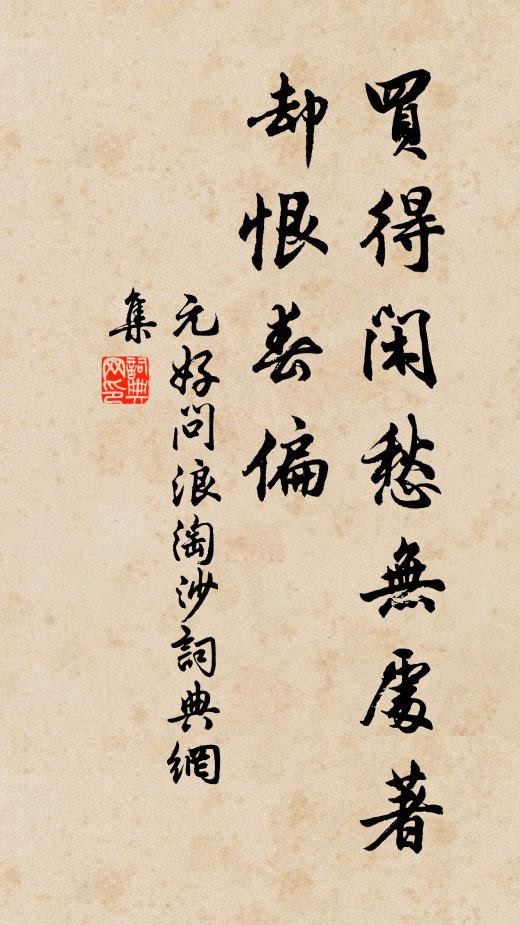 買得閑愁無處著
却恨春偏
元好問浪淘沙詞典網
集
詞典網印